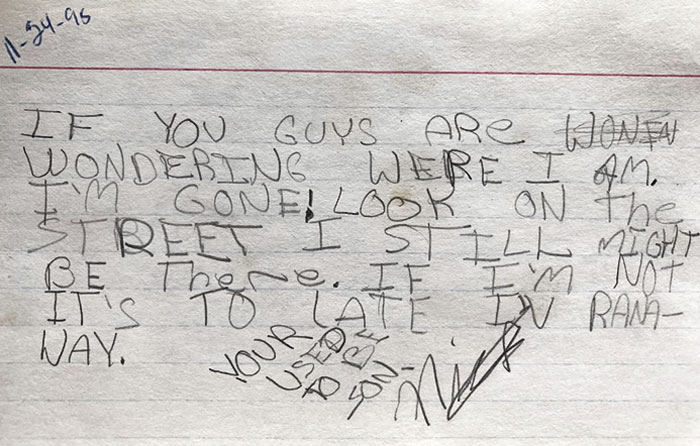 11-24-96
IF YOU GUYS ARe WONEN
WONDERING WERE I AM.
I'M GONE! LOOK ON The
STREET I STILL MIGHT
BE There. IF I'M NOT
IT'S TO LATE IV RANA-
WAY.
YOUR
USED
TO BE
SON-
Nick